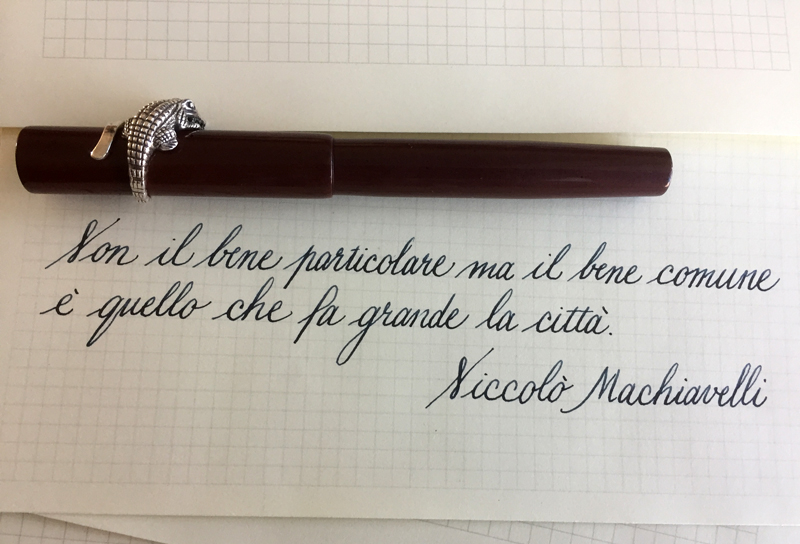 Non il bene particolare ma il bene comune
è quello che fa grande la città.
Niccolò Machiavelli